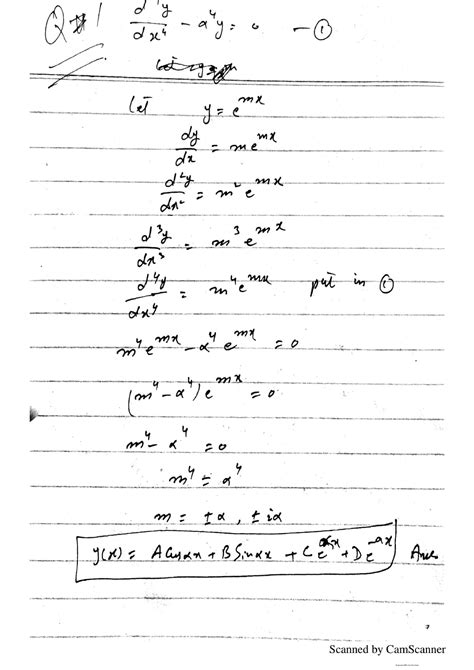 Q#1 d⁴y/dx⁴ - α⁴y = 0 — ①
Let y = e^{mx}
dy/dx = me^{mx}
d²y/dx² = m²e^{mx}
d³y/dx³ = m³e^{mx}
d⁴y/dx⁴ = m⁴e^{mx} put in ①
m⁴e^{mx} - α⁴e^{mx} = 0
(m⁴ - α⁴)e^{mx} = 0
m⁴ - α⁴ = 0
m⁴ = α⁴
m = ±α, ±iα
y(x) = A Cosαx + B Sinαx + Ce^{αx} + De^{-αx} Ans
Scanned by CamScanner